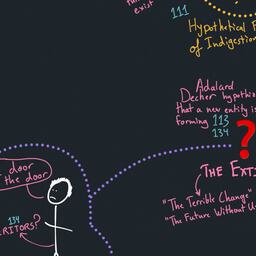 exist
111
Hypothetical
of Indigestion
Adalard
Decher
that a new entity is
forming 113
134
?
THE
"The Terrible Change"
"The Future Without
door
the door
134